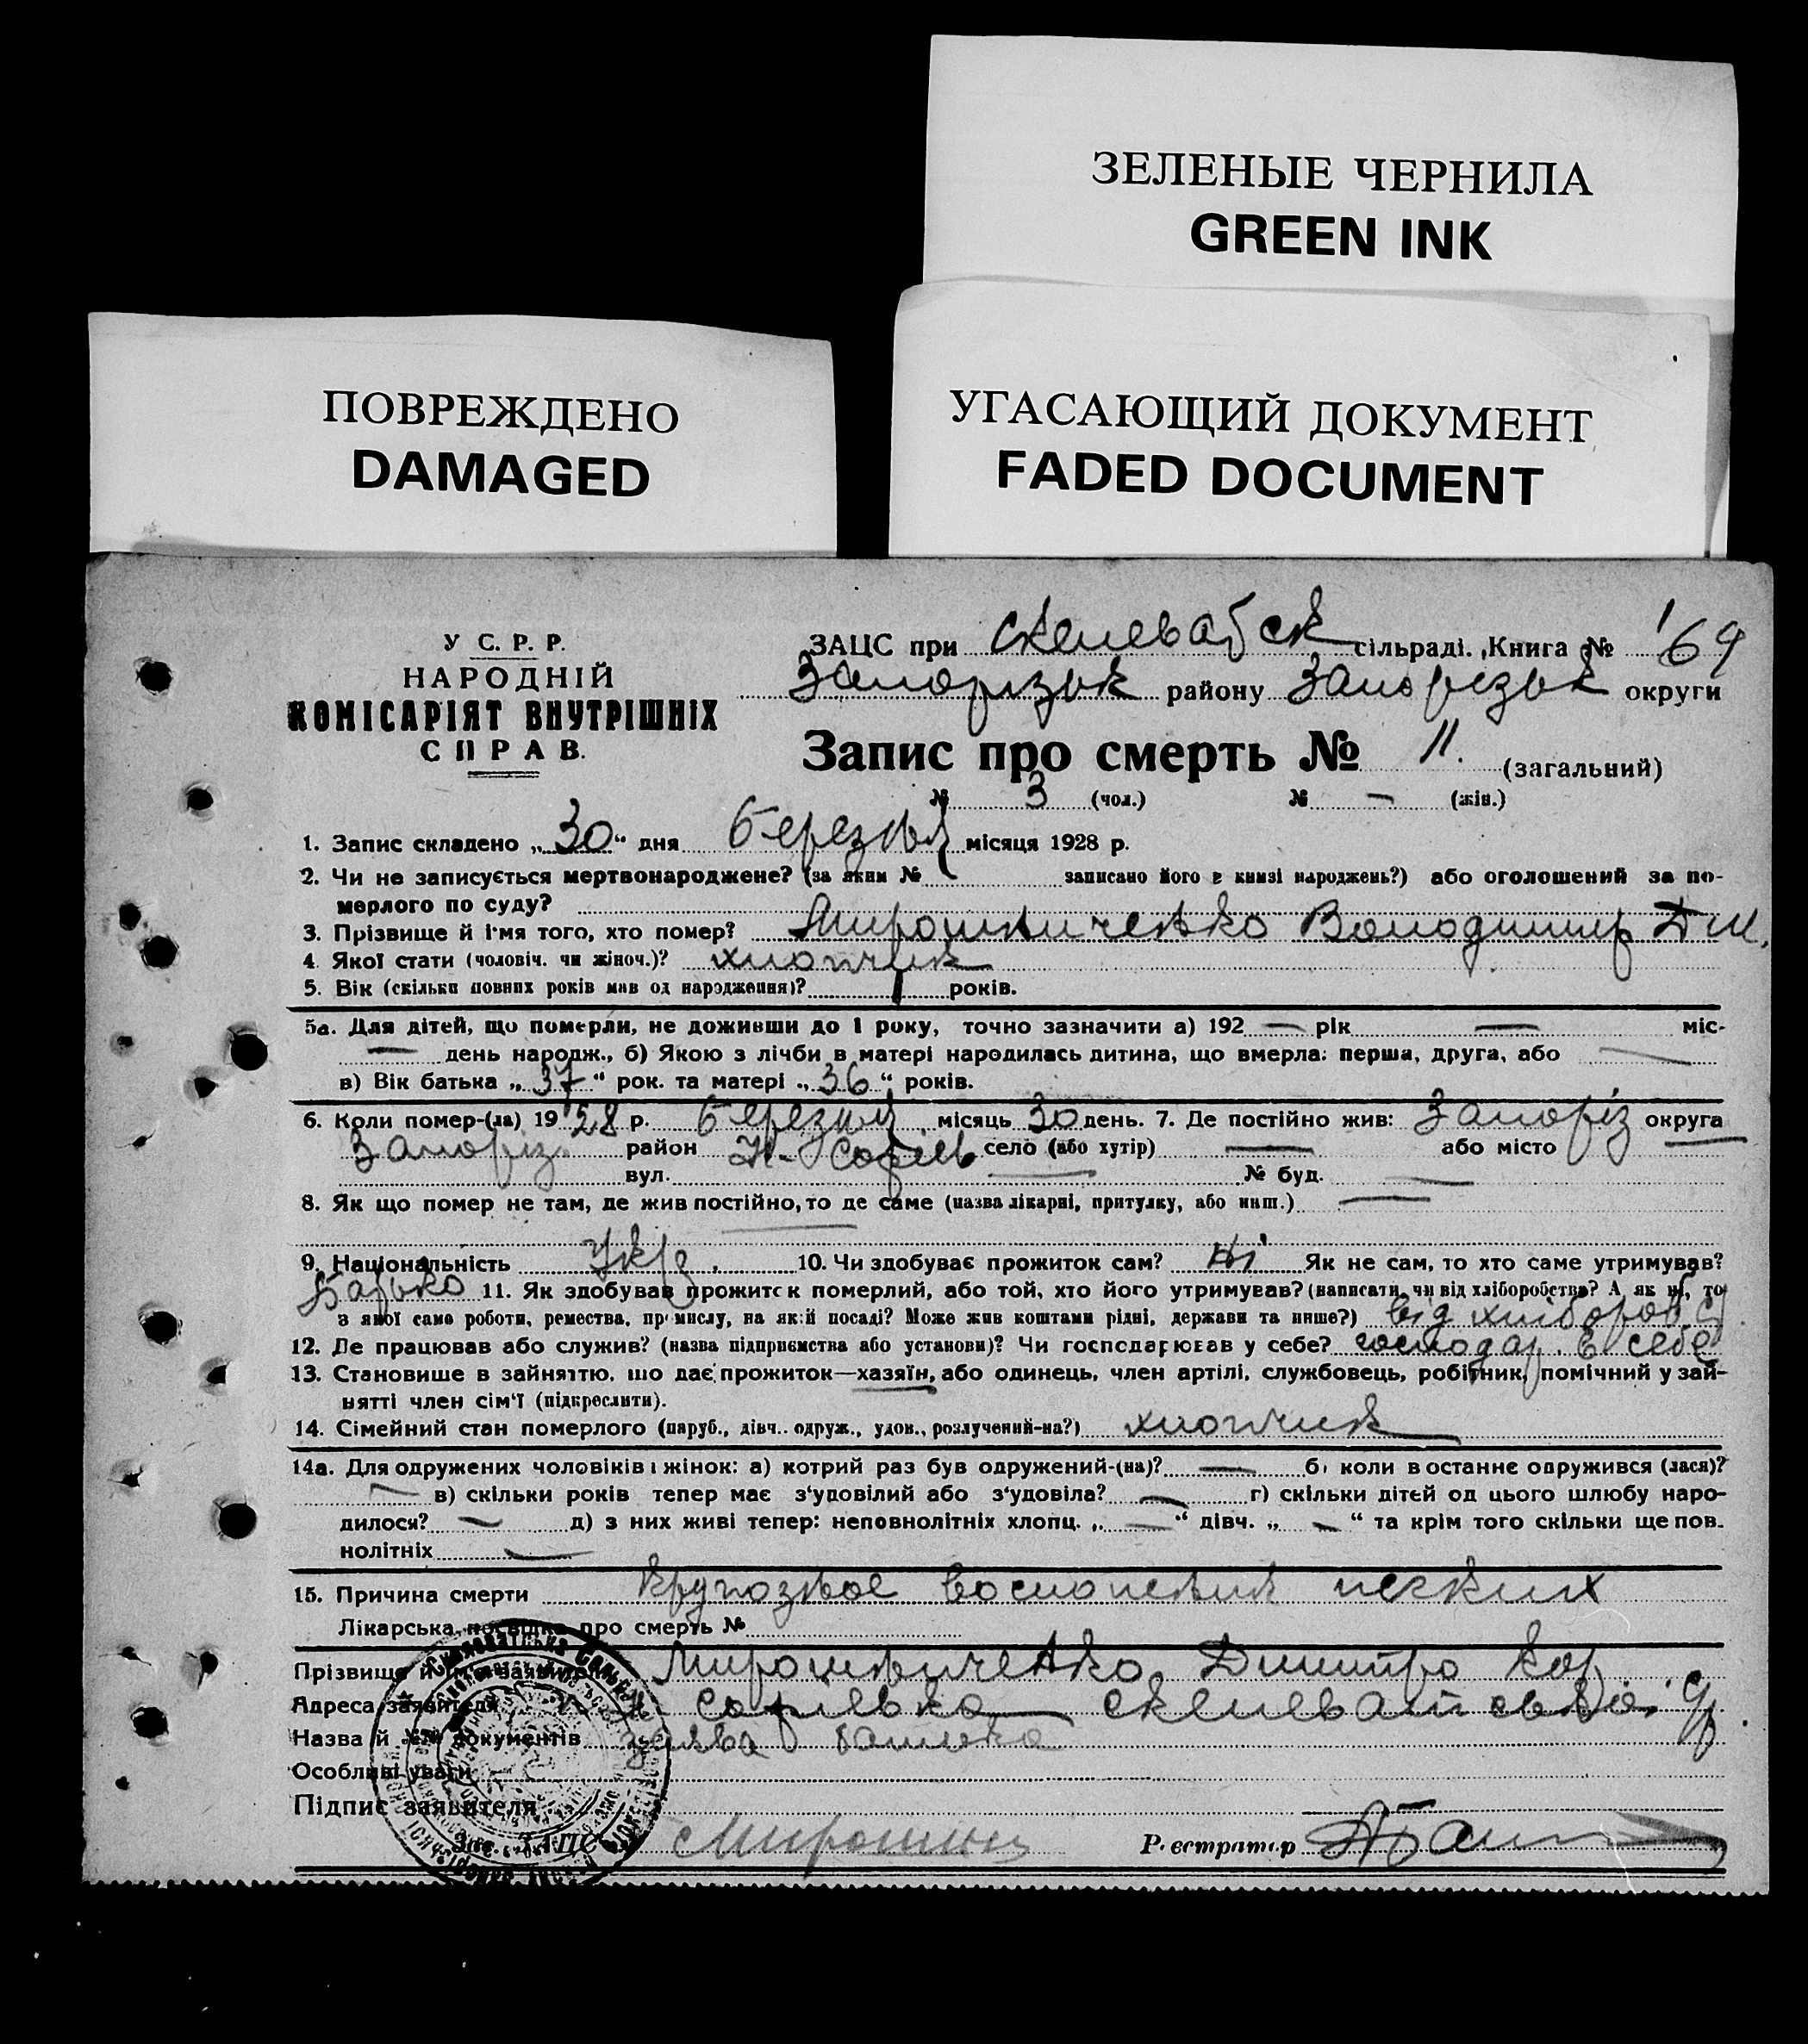 ЗЕЛЕНЫЕ ЧЕРНИЛА
GREEN INK
ПОВРЕЖДЕНО
DAMAGED
УГАСАЮЩИЙ ДОКУМЕНТ
FADED DOCUMENT
У С. Р. Р.
НАРОДНІЙ
КОМІСАРІЯТ ВНУТРІШНІХ
СПРАВ.
ЗАЦС при сільраді. Книга № 169
Запорізьк району Запорізьк округи
Запис про смерть № 11. (загальний)
№ 3 (чол.) № — (жін.)
1. Запис складено „30“ дня березня місяця 1928 р.
2. Чи не записується мертвонароджене? (за яким № записано його в книзі народжень?) або оголошений за по-
мерлого по суду?
3. Прізвище й ім'я того, хто помер? Мирошниченко Володимир Дм.
4. Якої стати (чоловіч. чи жіноч.)? хлопчик
5. Вік (скільки повних років мав од народження)? 1 років.
5а. Для дітей, що померли, не доживши до 1 року, точно зазначити а) 192 — рік — міс-
— день народж., б) Якою з лічби в матері народилась дитина, що вмерла: перша, друга, або —
в) Вік батька „37“ рок. та матері „36“ років.
6. Коли помер-(ла) 1928 р. березня місяць 30 день. 7. Де постійно жив: Запоріз округа
Запоріз. район Н. Софіев село (або хутір) — або місто —
вул. — № буд. —
8. Як що помер не там, де жив постійно, то де саме (назва лікарні, притулку, або инш.) —
9. Національність Укр. 10. Чи здобуває прожиток сам? ні Як не сам, то хто саме утримував?
Батько 11. Як здобував прожиток померлий, або той, хто його утримував? (написати, чи від хліборобства? А як ні, то
з якої само роботи, ремества, промислу, на якій посаді? Може жив коштами рідні, держави та инше?) від хлібороб.
12. Де працював або служив? (назва підприємства або установи)? Чи господарював у себе? господар. в себе
13. Становище в зайняттю, що дає прожиток—хазяїн, або одинець, член артілі, службовець, робітник, помічний у зай-
нятті член сім'ї (підкреслити).
14. Сімейний стан померлого (паруб., дівч.. одруж., удов., розлучений-на?) хлопчик
14а. Для одружених чоловіків і жінок: а) котрий раз був одружений-(на)? — б) коли востаннє одружився (лася)?
— в) скільки років тепер має з'удовілий або з'удовіла? — г) скільки дітей од цього шлюбу наро-
дилося? — д) з них живі тепер: неповнолітніх хлопц. „—“ дівч. „—“ та крім того скільки ще пов-
нолітніх —
15. Причина смерти крупозное воспаления легких
Лікарська посвідка про смерть №
Прізвище й ім'я заявителя Мирошниченко Дмитро Кор
Адреса заявителя Н Софіевка
Назва й документів заява батька
Особливі уваги
Підпис заявителя
Зав. ЗАЦС Реєстратор